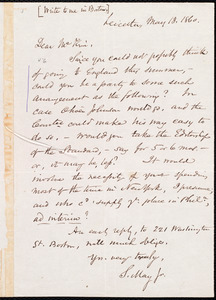 [Write to me in Boston]
Leicester, May 13. 1860.
Dear Mr Kim.
Since you could not possibly think
of going to England this summer,
could you be a party to some such
arrangement as the following? In
case Oliver Johnson would go, and the
Comtee could make his way easy to
do so, – Would you take the Editorship
of the Standard, – say for 5 or 6 mos. –
or, it may be, less? It would
involve the necessity of your spending
most of the time in New York, I presume,
and who cd. supply yr. place in Phila.,
ad interim?
An early reply, to 221 Washington
St. Boston, will much oblige.
Yrs. very truly,
S. May Jr.